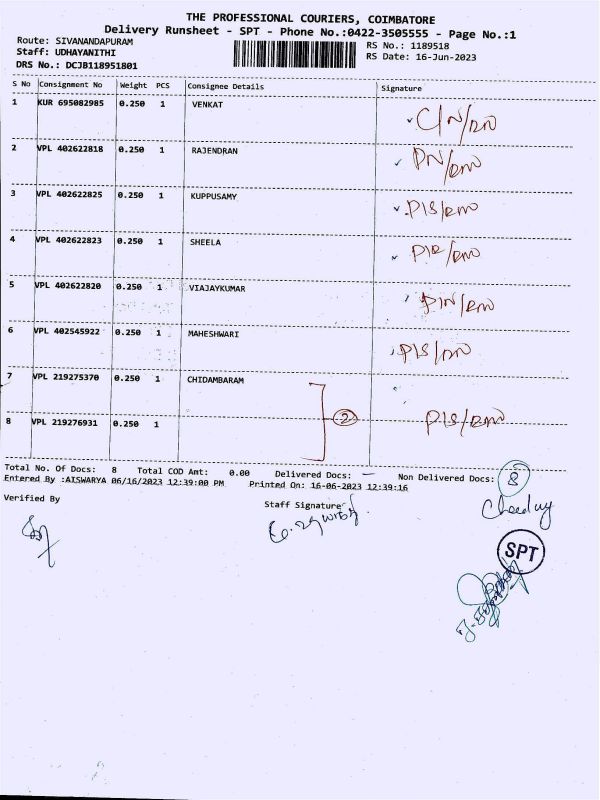 THE PROFESSIONAL COURIERS, COIMBATORE
Delivery Runsheet - SPT - Phone No.:0422-3505555 - Page No.:1
Route: SIVANANDAPURAM RS No.: 1189518
Staff: UDHAYANITHI RS Date: 16-Jun-2023
DRS No.: DCJB118951801
S No Consignment No Weight PCS Consignee Details Signature
1 KUR 695082985 0.250 1 VENKAT
2 VPL 402622818 0.250 1 RAJENDRAN
3 VPL 402622825 0.250 1 KUPPUSAMY
4 VPL 402622823 0.250 1 SHEELA
5 VPL 402622820 0.250 1 VIAJAYKUMAR
6 VPL 402545922 0.250 1 MAHESHWARI
7 VPL 219275370 0.250 1 CHIDAMBARAM
8 VPL 219276931 0.250 1
2
Total No. Of Docs: 8 Total COD Amt: 0.00 Delivered Docs: — Non Delivered Docs: 8
Entered By :AISWARYA 06/16/2023 12:39:00 PM Printed On: 16-06-2023 12:39:16
Verified By Staff Signature
SPT